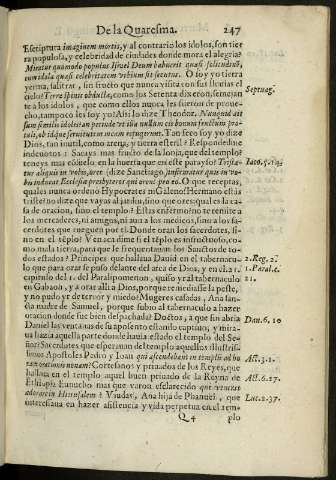 De la Quaresma. 247
Escriptura imaginem mortis, y al contrario los idolos, son tier
ra populosa, y celebridad de ciudades donde mora el alegria?
Miratur quomodo populus Israel Deum habuerit quasi
nem idola quasi celebritatem vrbium sit secutus. O soy yo tierra
yerma, salitral, sin fruto que nunca visita con sus lluvias el
cielo? Terra spinis obducta, como los Setenta dizen
te a los idolos, que como ellos nunca les fueron de proue-
cho, tampoco les soy yo? Assi lo dize Theodor. Nunquid ait
sum similis idolis
Tan seco soy yo dize
Dios, tan inutil, como arena, y tierra esteril? Respondedme
indeuotos: Sacays mas fructo de la lonja, que del templo?
teneys mas cosecha en la huerta que en este parayso? Trista-
tur aliquis in vobis, oret (dize Sanctiago) infirmatur quis in vo-
bis inducat Ecclesiæ presbyteros qui orent pro eo. O que receptas,
quales nunca ordeno Hypocrates ni Galeno! Hermano estas
triste? no dize que vayas al jardin, sino que ores: qual es la ca-
sa de oracion, sino el templo? Estas enfermo? no te remite a
los mercaderes, ni amigos, ni aun a los medicos, sino a los Sa-
cerdotes que rueguen por ti. Donde oran los sacerdotes, si-
no en el templo? Ven aca dime si el templo es infructuoso, co-
mo mala tierra, para que le frequentaran los Sanctos de to-
dos estados? Principes que hallaua Dauid en el tabernacu-
lo que para orar se puso delante del arca de Dios, y en el 1.
capitulo del 1. del Paralipomenon, quiso yr al tabernaculo
en Gabaon, y a orar alli a Dios, porque remediasse la peste,
y no pudo yr de temor y miedo? Mugeres casadas, Ana san-
cta madre de Samuel, porque subio al tabernaculo a hazer
oracion donde fue bien despachada? Doctos, a que fin abria
Daniel las ventanas de su aposento estando captiuo, y mira-
ua hazia aquella parte donde hauia estado el templo del Se-
ñor? Sacerdotes que esperaron de templo aquellos Illustrissi-
simos Apostoles Pedro y Ioan qui ascendebant in templũ ad ho
ram orationis nonam? Cortesanos y priuados de los Reyes, que
hallaua en el templo aquel buen priuado de la Reyna de
Ethiopia Eunucho mas que varon esclarecido que veniat
adorare in Hierusalem? Viudas, Ana hija de Phanuel, que
interessaua en hazer assistencia y vida perpetua en el tem-
Q4 plo
Septuag.
Iaco. 5. 14.
2. Reg. 2.
1. Paral. c.
21.
Dan. 6. 10
Act. 3. 1.
Act. 8. 27.
Luc. 2. 37.